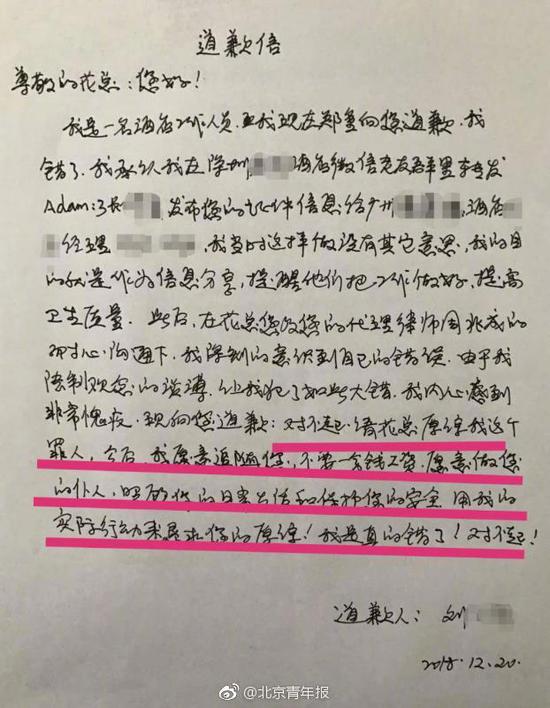 道歉信
尊敬的花总：您好！
我是一名酒店工作人员，而我现在郑重向您道歉，我
错了。我承认我在深圳 酒店微信老友群里转发
Adam:3张 发布您的证件信息给广州 ，酒店
经理 ，我当时这样做没有其它意思，我的目
的仅是作为信息分享，提醒他们把工作做好，提高
卫生质量。此后，在花总您及您的代理律师周兆成的
耐心沟通下，我深刻的意识到自己的错误。由于我
法制观念的淡薄，让我犯了如此大错，我内心感到
非常愧疚，现向您道歉：对不起，请花总原谅我这个
罪人，今后，我愿意追随您，不要一分钱工资，愿意做您
的仆人，照顾您的日常生活和保护您的安全，用我的
实际行动来寻求您的原谅！我是真的错了！对不起！
道歉人：刘
2018.12.20.
@北京青年报